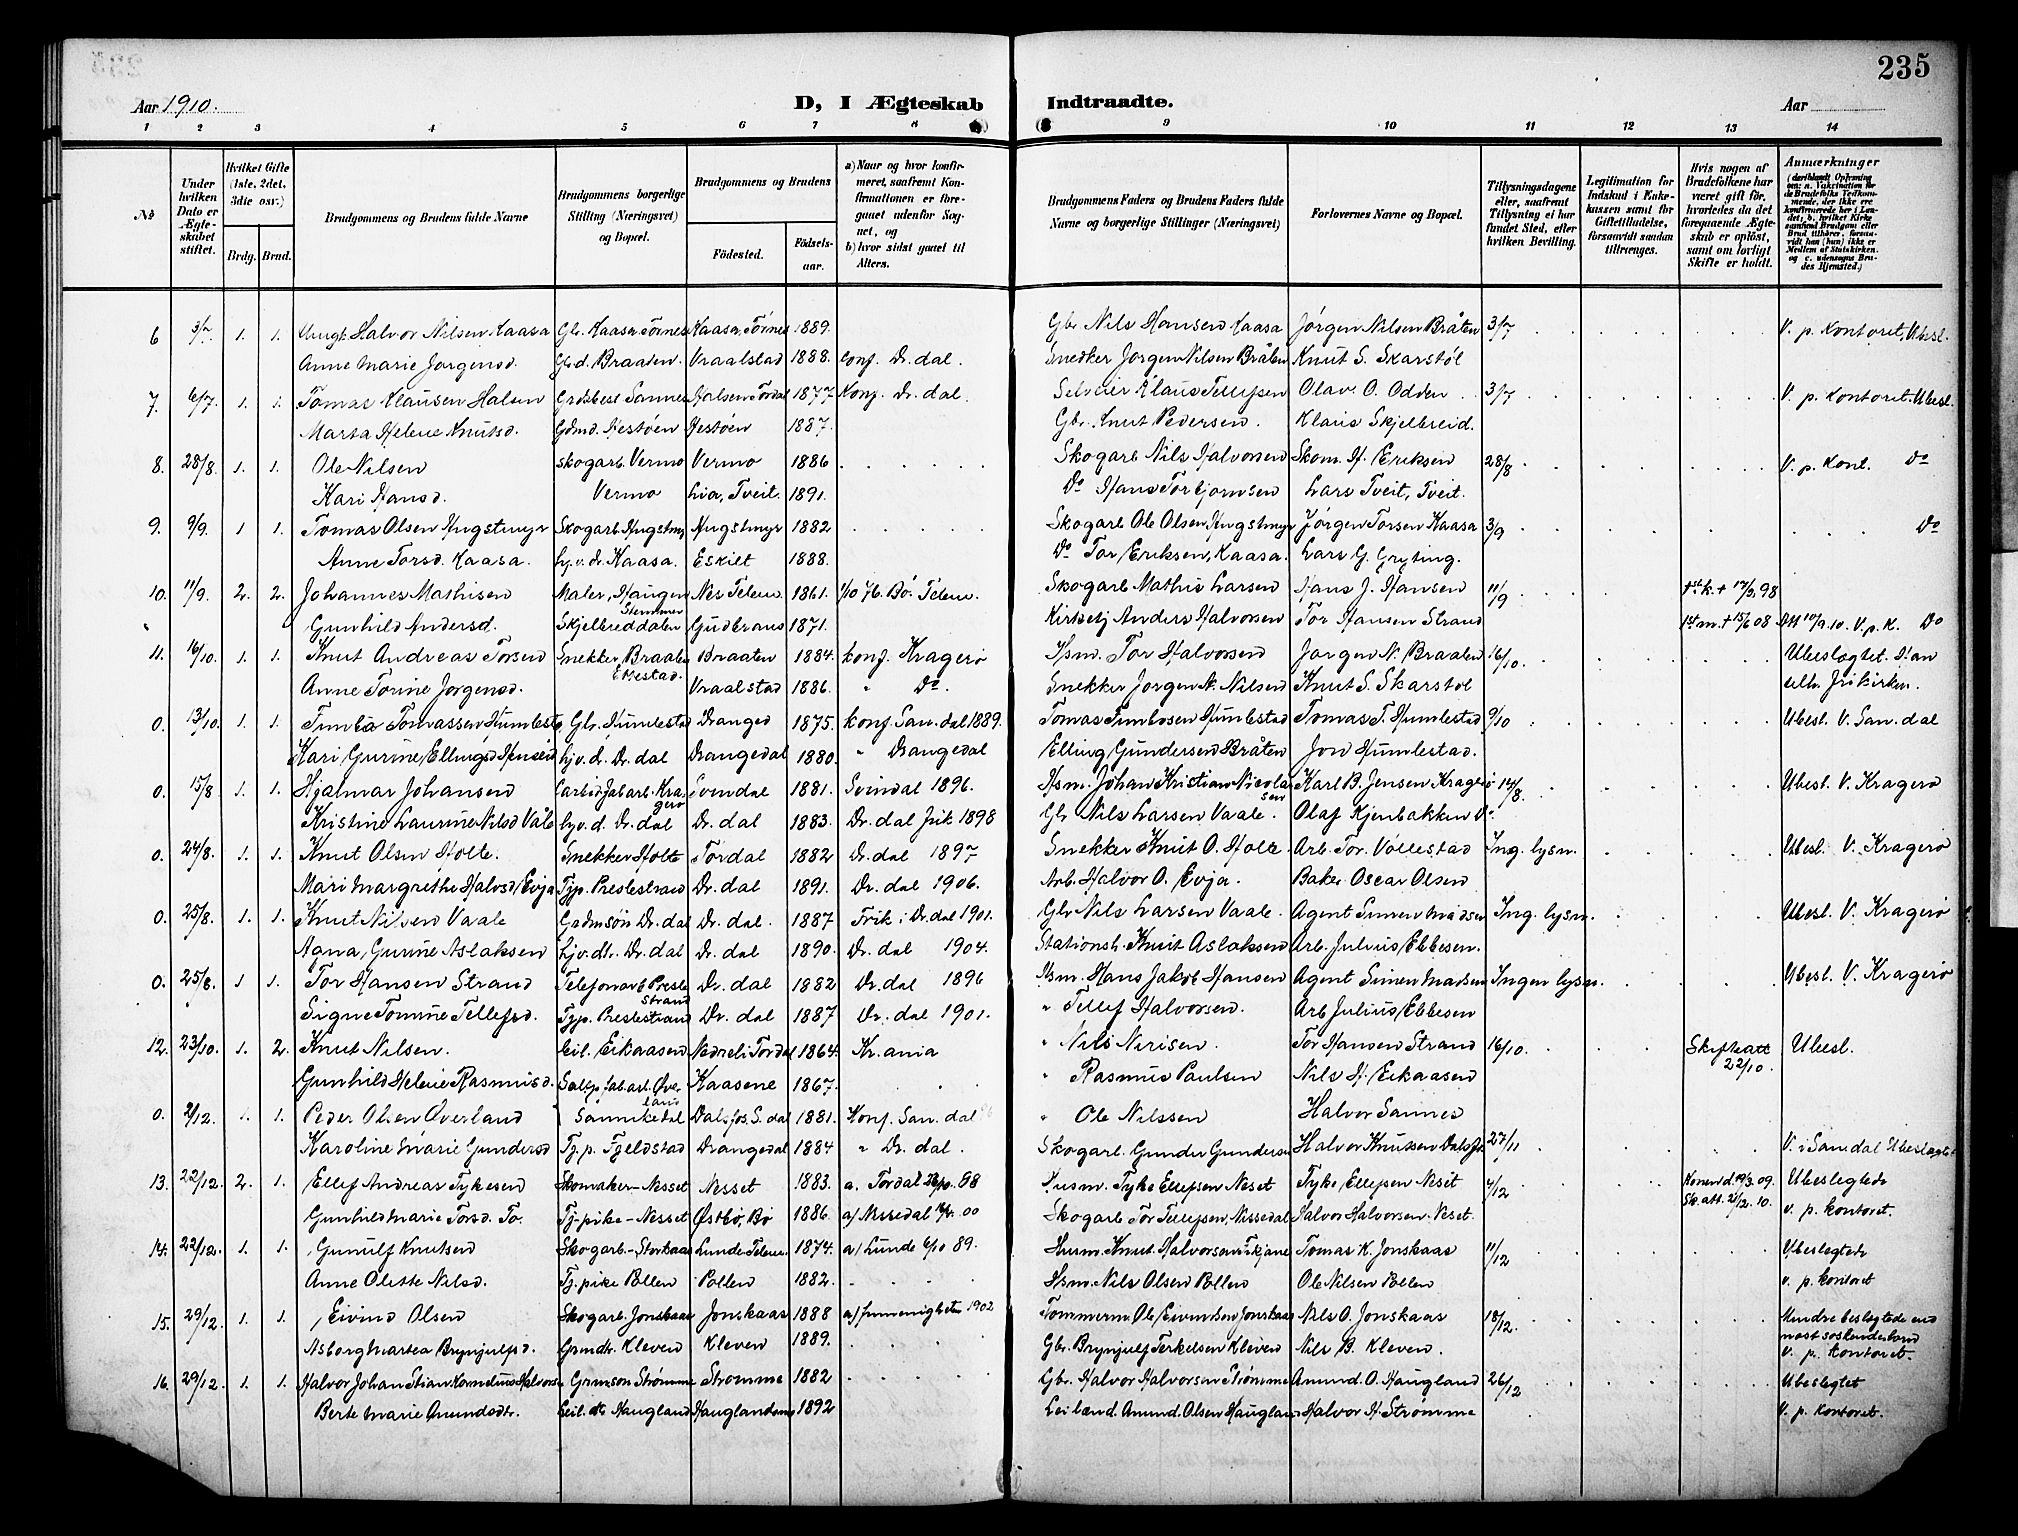 235
Aar 1910.
D, I Ægteskab Indtraadte.
Aar
1 2 3 4 5 6 7 8 9 10 11 12 13 14
No
Under hvilken Dato er Ægteskabet stiftet.
Hvilket Gifte (1ste, 2det, 3die osv.)
Brdg. Brud.
Brudgommens og Brudens fulde Navne
Brudgommens borgerlige Stilling (Næringsvei) og Bopæl.
Brudgommens og Brudens
Fødested.
Fødselsaar.
a) Naar og hvor konfirmeret, saafremt Konfirmationen er foregaaet udenfor Sognet, og
b) hvor sidst gaaet til Alters.
Brudgommens Faders og Brudens Faders fulde Navne og borgerlige Stillinger (Næringsvei)
Forlovernes Navne og Bopæl.
Tillysningsdagene eller, saafremt Tillysning ei har fundet Sted, efter hvilken Bevilling.
Legitimation for Indskud i Enkekassen samt for Giftetilladelse, forsaavidt saadan tiltrænges.
Hvis nogen af Brudefolkene har været gift før, hvorledes da det foregaaende Ægteskab er opløst, samt om lovligt Skifte er holdt.
Anmærkninger
6 3/7 1. 1. Halvor Nilsen Kaasa Gbr. Kaasa, Tørnes Kaasa, Tørnes 1889. Gbr Nils Hansen Kaasa Jørgen Nilsen Bråten 3/7 V. p. Kontoret, Ubesl.
Anne Marie Jørgensd. Gbd. Braaten Vraalstad 1888. Conf. Dr.dal. Snedker Jørgen Nilsen Bråten Knut S. Skarstøl
7. 6/7 1. 1. Tomas Klausen Halsen Grdsbest Sannes Halsen Tørdal 1877 Konf. Dr. dal. Selveier Klaus Tellefsen Olav O. Odden 3/7 V. p. Kontoret. Ubesl.
Marta Helene Knutsd. Gdmd. Hestøen Hestøen 1887. Gbr. Knut Pedersen. Klaus Skjelbreid.
8. 28/8. 1. 1. Ole Nilsen skogarb. Vermo Vermo 1886 Skogarb Nils Halvorsen Skom. H. Eriksen 28/8 V. p. Kont. Do
Kari Hansd. Vermo Lia, Tveit. 1891. Do Hans Torbjørnsen Lars Tveit, Tveit.
9. 9/9. 1 1. Tomas Olsen Hugstmyr Skogarb. Hugstmyr Hugstmyr 1882 Skogarb Ole Olsen Hugstmyr Jørgen Torsen Kaasa 3/9 Do
Anne Torsd. Kaasa. hj.v.dr. Kaasa. Eskilt 1888. Do Tor Eriksen, Kaasa. Lars G. Gryting.
10. 11/9. 2. 2. Johannes Mathisen Maler, Haugen Nes Telem. 1861. 1/10 76. Bø. Telem. Skogarb Mathis Larsen Hans J. Hansen 11/9 1st k. + 17/3 98
Gunhild Andersd. Stemmen Skjelbreddalen Gudbrans 1871. Kirketj Anders Halvorsen Tor Hansen Strand 1st m. + 15/6 08 V. p. K. Do
11. 16/10. 1. 1. Knut Andreas Torsen Snekker, Braaten Braaten 1884. Konf. Kragerø Hsm. Tor Halvorsen Jørgen N. Braaten 16/10. Ubeslægtet. Han
Anne Torine Jørgensd. Vraalstad 1886. " Do. Snekker Jørgen N. Nilsen Knut S. Skarstøl tilh. frikirken.
0. 13/10. 1. 1. Tomassen Humlestø Gbr. Humlestad Dranged 1875. Konf. San.dal 1889. Tomas Humlestad Tomas T. Humlestad 9/10 Ubesl. V. San.dal
Kari Gurine Ellingsd hj.v.d. Dr. dal Drangedal 1880. " Drangedal Elling Gundersen Bråten Jon Humlestad.
0. 15/8 1. 1. Hjalmar Johansen Carbidfabarb. Kragerø Svindal 1881. Svindal 1896. Hsm. Johan Kristian Nicolaisen Karl B. Jensen Kragerø 14/8. Ubesl. V. Kragerø
Kristine Laurine Nilsd Vale hj.v.d. Dr. dal Dr. dal 1883. Dr. dal frik 1898 Gbr Nils Larsen Vaale. Olaf Kjenbakken Do.
0. 24/8. 1. 1. Knut Olsen Holte. Snekker Holte Tørdal 1882 Dr. dal 1897 Snekker Knut O. Holte. Arb. Tor. Vøllestad Ing. lysn. Ubesl. V. Kragerø
Mari Margrethe Halvsd Evja Tjp. Prestestrand Dr. dal 1891. Dr. dal 1906. Arb. Halvor O. Evja. Baker Oscar Olsen
0. 25/8. 1. 1. Knut Nilsen Vaale Gadmsøn Dr. dal Dr. dal. 1887 Frik i Dr. dal 1901. Gbr Nils Larsen Vaale. Agent Simen Madsen Ing. lysn. Ubesl. V. Kragerø
Anna Gurine Aslaksen hj.v.dtr. Dr. dal Dr. dal 1890. Dr. dal 1904. Stationsb. Knut Aslaksen Arb. Julius Ebbesen.
0. 25/8. 1 1. Tor Hansen Strand Telefonarb Prestestrand Dr. dal 1882 Dr. dal 1896 Hsm. Hans Jakob Hansen Agent Simen Madsen Ingen lysn. Ubesl. V. Kragerø
Signe Tomine Tellefsd. Tjp. Prestestrand Dr. dal 1887 Dr. dal 1901. " Tellef Halvorsen. Arb Julius Ebbesen
12. 23/10. 1. 2. Knut Nilsen. Leil. Eikaasen Nedreli Tørdal 1864. Kr.ania " Nils Nirisen. Tor Hansen Strand 16/10. Skifteatt 22/10. Ubesl.
Gunhild Helene Rasmusd. Kaasene 1867. " Rasmus Paulsen Nils H. Eikaasen
0. 2/12. 1. 1. Peder Olsen Øverland Sannikedal Dalsfos. S. dal 1881. Konf. San. dal " Ole Nilssen Halvor Sannes
Karoline Marie Gundersd Tj. p. Fjeldstad Drangedal 1884 " Dr. dal. Skogarb. Gunder Gundersen Halvor Knutsen Dalsfos 27/11 V. i San.dal Ubeslægtet
13. 22/12. 2. 1. Ellef Andreas Tykesen Skomaker - Nesset Nesset 1883. a. Tørdal 98 Husm. Tyke Ellefsen Neset Tyke Ellefsen Neset 4/12 09. Sk. att. 10. Ubeslegtede
Gunhild Marie Torsd. Tj. pike - Nesset Østbø, Bø 1886. a/ Nissedal 00 Skogarb Tor Tellefsen, Nissedal Halvor Halvorsen Neset. v. p. kontoret.
14. 22/12. 1. 1. Gunulf Knutsen Skogarb. - Storkaas Lunde Telem. 1874. a/ Lunde 6/10 89. Husm. Knut Halvorsen Skjane Tomas K. Jonskaas 11/12 Ubeslegtede
Anne Olette Nilsd. Tj. pike Pollen Pollen 1882. Hsm. Nils Olsen Pollen Ole Nilsen Pollen v. p. kontoret
15. 29/12. 1. 1. Eivind Olsen Skogarb. Jonskaas Jonskaas 1888 a/ frimenigheten 1902 Tømmerm. Ole Eivindsen Jonskaas Nils O. Jonskaas 18/12. Mindre beslegtede end
Asborg Martea Brynjulfsd. Grmdtr. Kleven Kleven 1889. Gbr. Brynjulf Terkelsen Kleven Nils B. Kleven. næst søskendebarn v. p. Kontoret.
16. 29/12. 1. 1. Halvor Johan Stian Kornelius Halvorsen Grmsøn Strømme Strømme 1882 Gbr. Halvor Halvorsen Strømme Amund. O. Haugland 26/12 Ubeslegtet
Berte Marie Amundsdtr. Leil. dtr Haugland Hauglandsmo 1892 Leilænd. Amund Olsen Haugland Halvor H. Strømme V. p. kontoret.